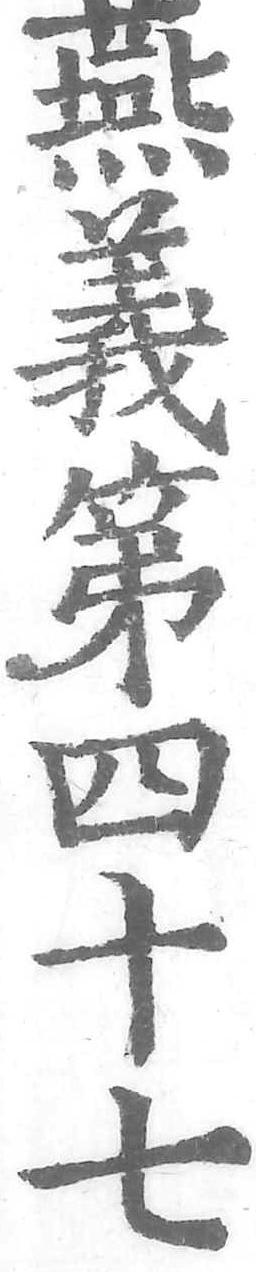 燕義第四十七